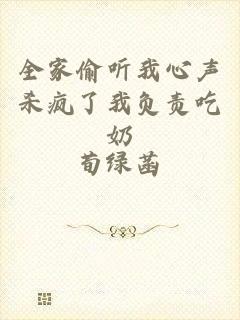 全家偷听我心声
杀疯了我负责吃
奶
荀绿菡